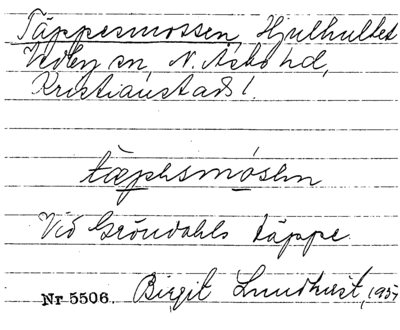 Täppesmossen, Hjulhultet
Vedby sn, N. Åsbo hd,
Kristianstads l.
tæpesmósen
Vid Gröndahls täppe.
Nr 5506. Birgit Lundkvist, 195